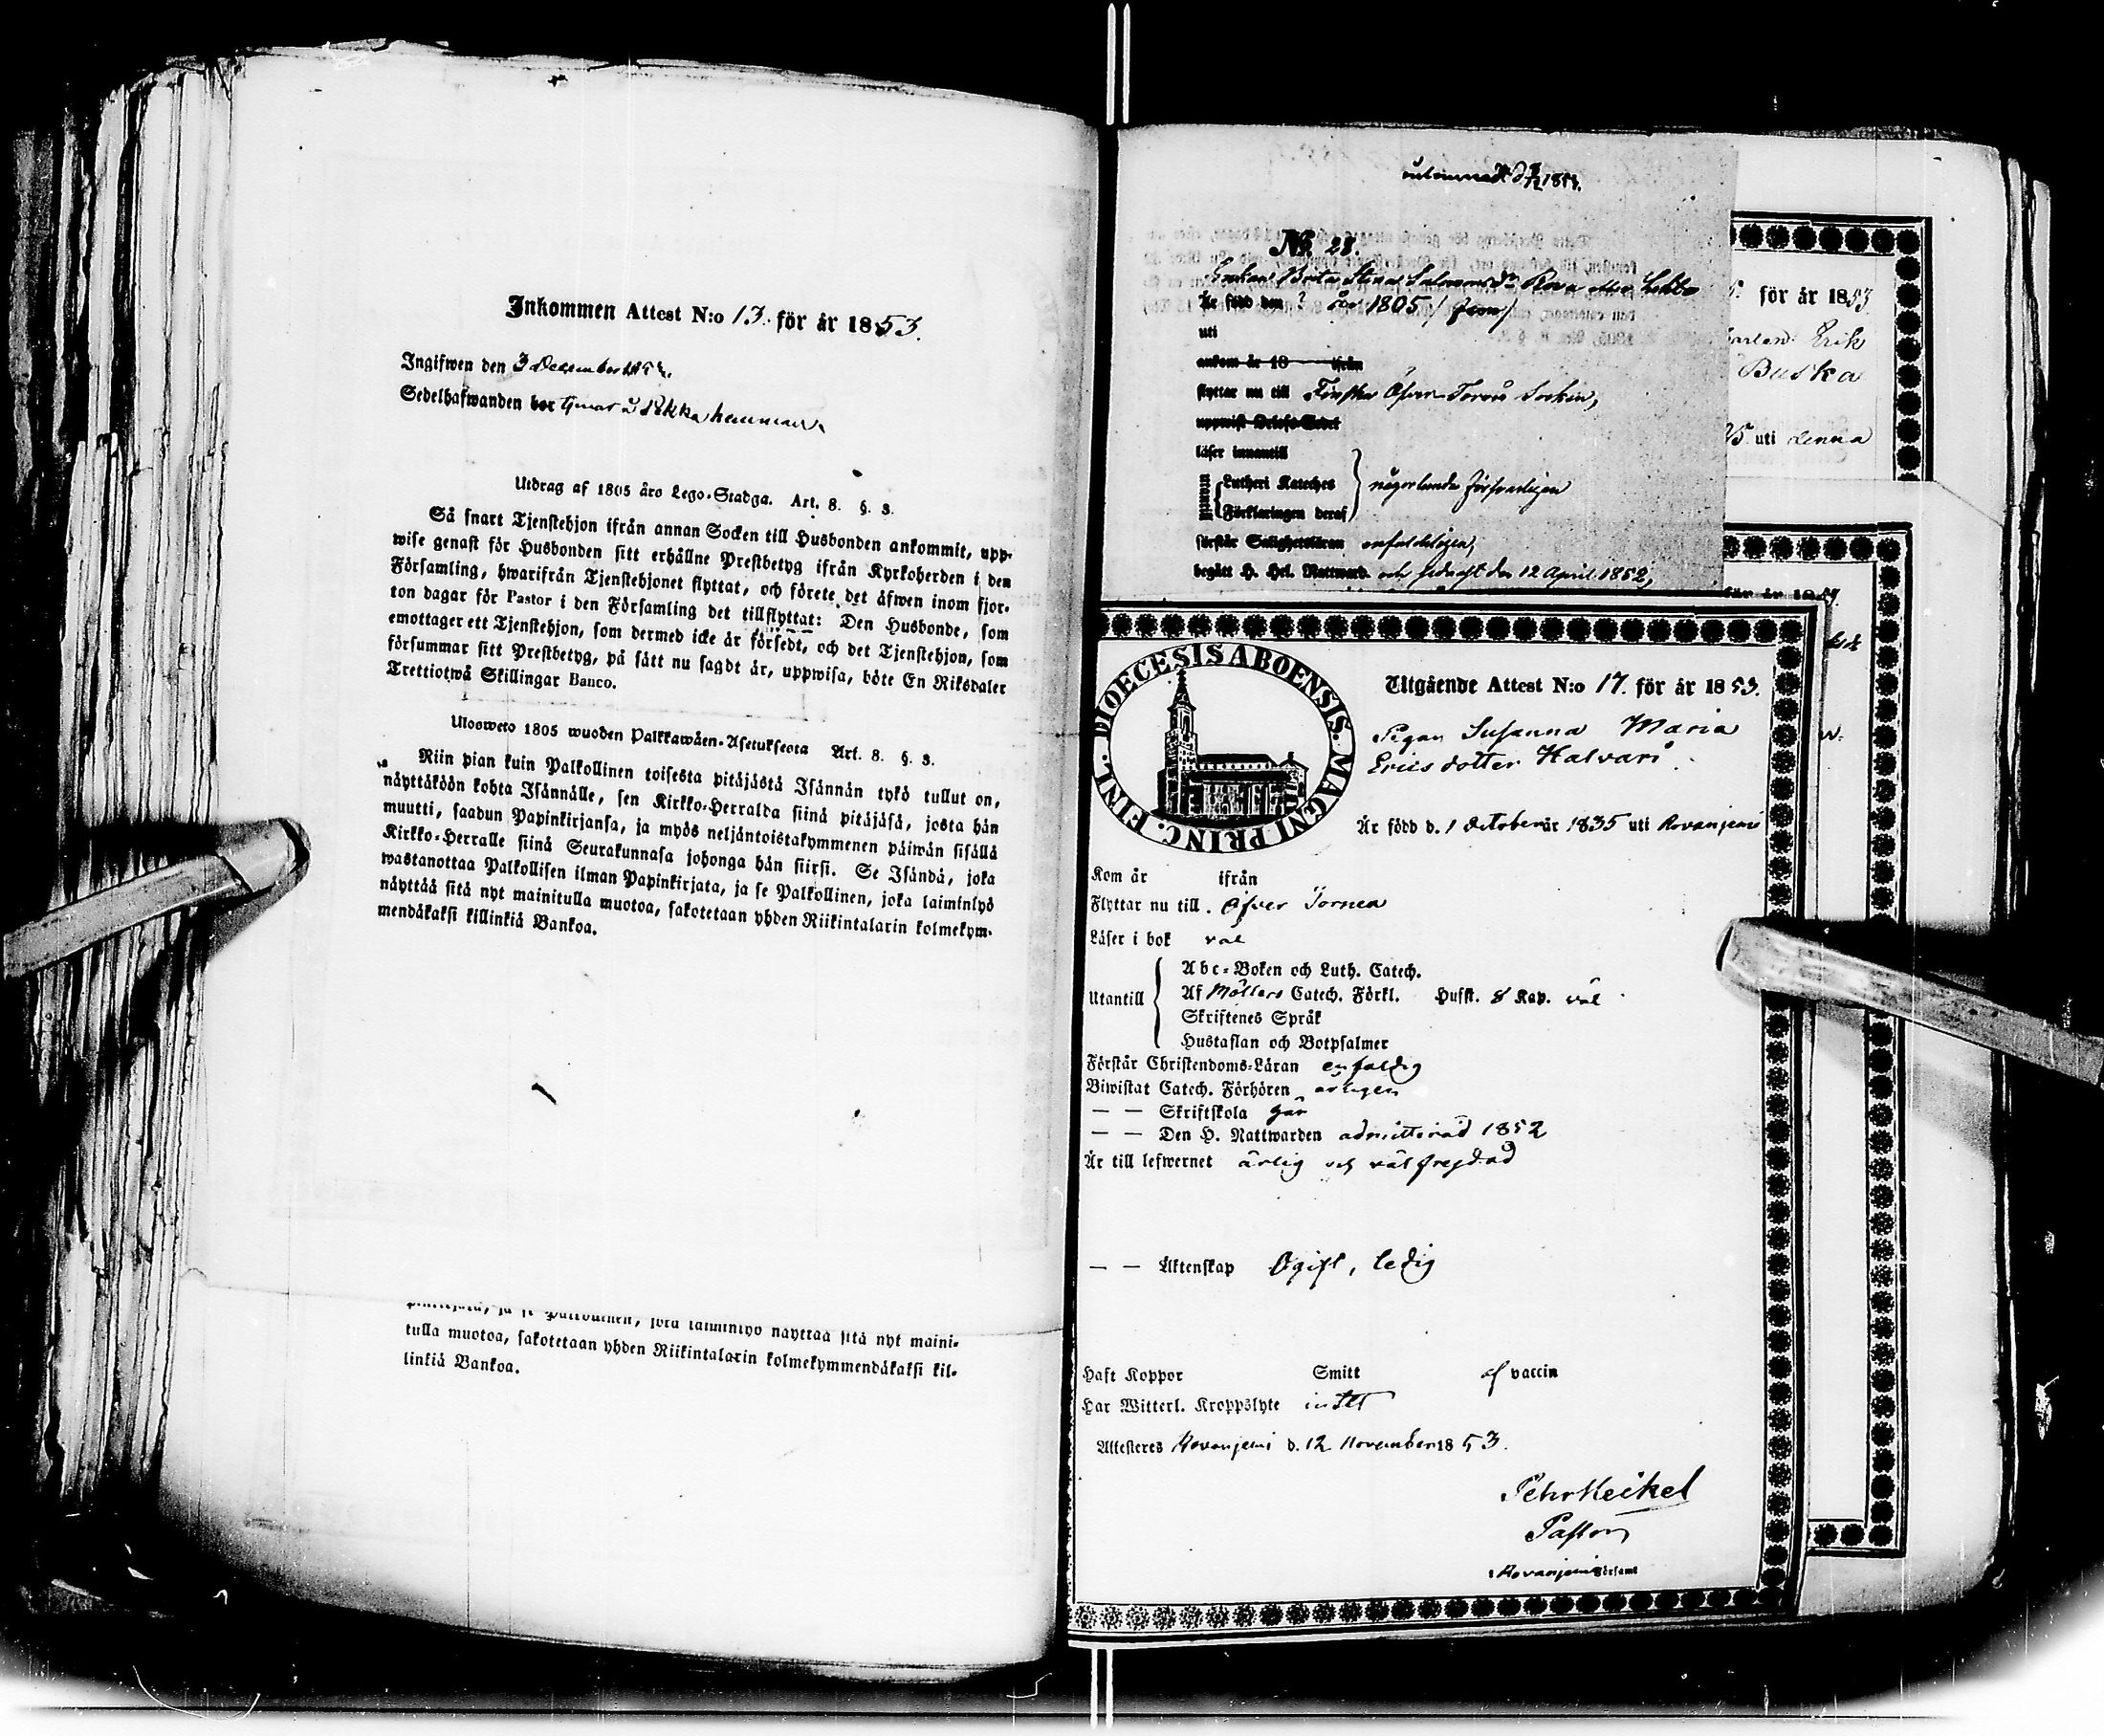 Inkommen Attest N:o 13. för år 1853.
Ingifwen den 3 December
Sedelhafwanden bor tjenar å hemman
Utdrag af 1805 års Lego-Stadga. Art. 8. §. 3.
Så snart Tjenstehjon ifrån annan Socken till Husbonden ankommit, upp-
wise genast för Husbonden sitt erhållne Prestbetyg ifrån Kyrkoherden i den
Församling, hwarifrån Tjenstehjonet flyttat, och förete det äfwen inom fjor-
ton dagar för Pastor i den Församling det tillflyttat: Den Husbonde, som
emottager ett Tjenstehjon, som dermed icke är försedt, och det Tjenstehjon, som
försummar sitt Prestbetyg, på sätt nu sagdt är, uppwisa, böte En Riksdaler
Trettiotwå Skillingar Banco.
Ulosweto 1805 wuoden Palkkawäen-Asetuksesta Art. 8. §. 3.
Niin pian kuin Palkollinen toisesta pitäjästä Isännän tykö tullut on,
näyttäköön kohta Isännälle, sen Kirkko-Herralda siinä pitäjäsä, josta hän
muutti, saadun Papinkirjansa, ja myös neljäntoistakymmenen päiwän sisällä
Kirkko-Herralle siinä Seurakunnasa johonga hän siirsi. Se Isändä, joka
wastanottaa Palkollisen ilman Papinkirjata, ja se Palkollinen, joka laiminlyö
näyttää sitä nyt mainitulla muotoa, sakotetaan yhden Riikintalarin kolmekym-
mendäkaksi killinkiä Bankoa.
ja se Palkollinen, joka laiminlyö näyttää sitä nyt maini-
tulla muotoa, sakotetaan yhden Riikintalarin kolmekymmendäkaksi kil-
linkiä Bankoa.
No. 28.
Enkan Brita Stina Salomonsdr Rova eller
Är född den ? år 1805
uti
ankom år 18 ifrån
flyttar nu till Finska Öfver Torneå Socken,
läser innantill
Lutheri Kateches
Förklaringen deraf
någorlunda försvarligen
förstår Salighetsläran enfaldeligen,
begått H. Hel. Nattward. och sednast den 12 April 1852,
för år 1853
Erik
Buska
uti denna
Utgående Attest N:o 17. för år 1853.
Pigan Susanna Maria
Ericsdotter Halvari
Är född d. 1 October år 1835 uti Rovanjemi
DIOECESIS ABOENSIS. MAGNI PRINC. FINL.
Kom år ifrån
Flyttar nu till. Öfver Torneå
Läser i bok väl
Utantill
Abc-Boken och Luth. Catech.
Af Möllers Catech. Förkl. Husst. 8 Kap. väl
Skriftenes Språk
Hustaflan och Botpsalmer
Förstår Christendoms-Läran enfaldig
Biwistat Catech. Förhören årligen
— — Skriftskola går
— — Den H. Nattwarden admitterad 1852
Är till lefwernet ärlig och väl frejdad
— — Äktenskap Ogift, ledig
Haft Koppor Smitt af vaccin
Har Witterl. Kroppslyte intet
Attesteres Rovanjemi d. 12 November 1853.
Pehr Heikel
Pastor
i Rovanjemi Församl